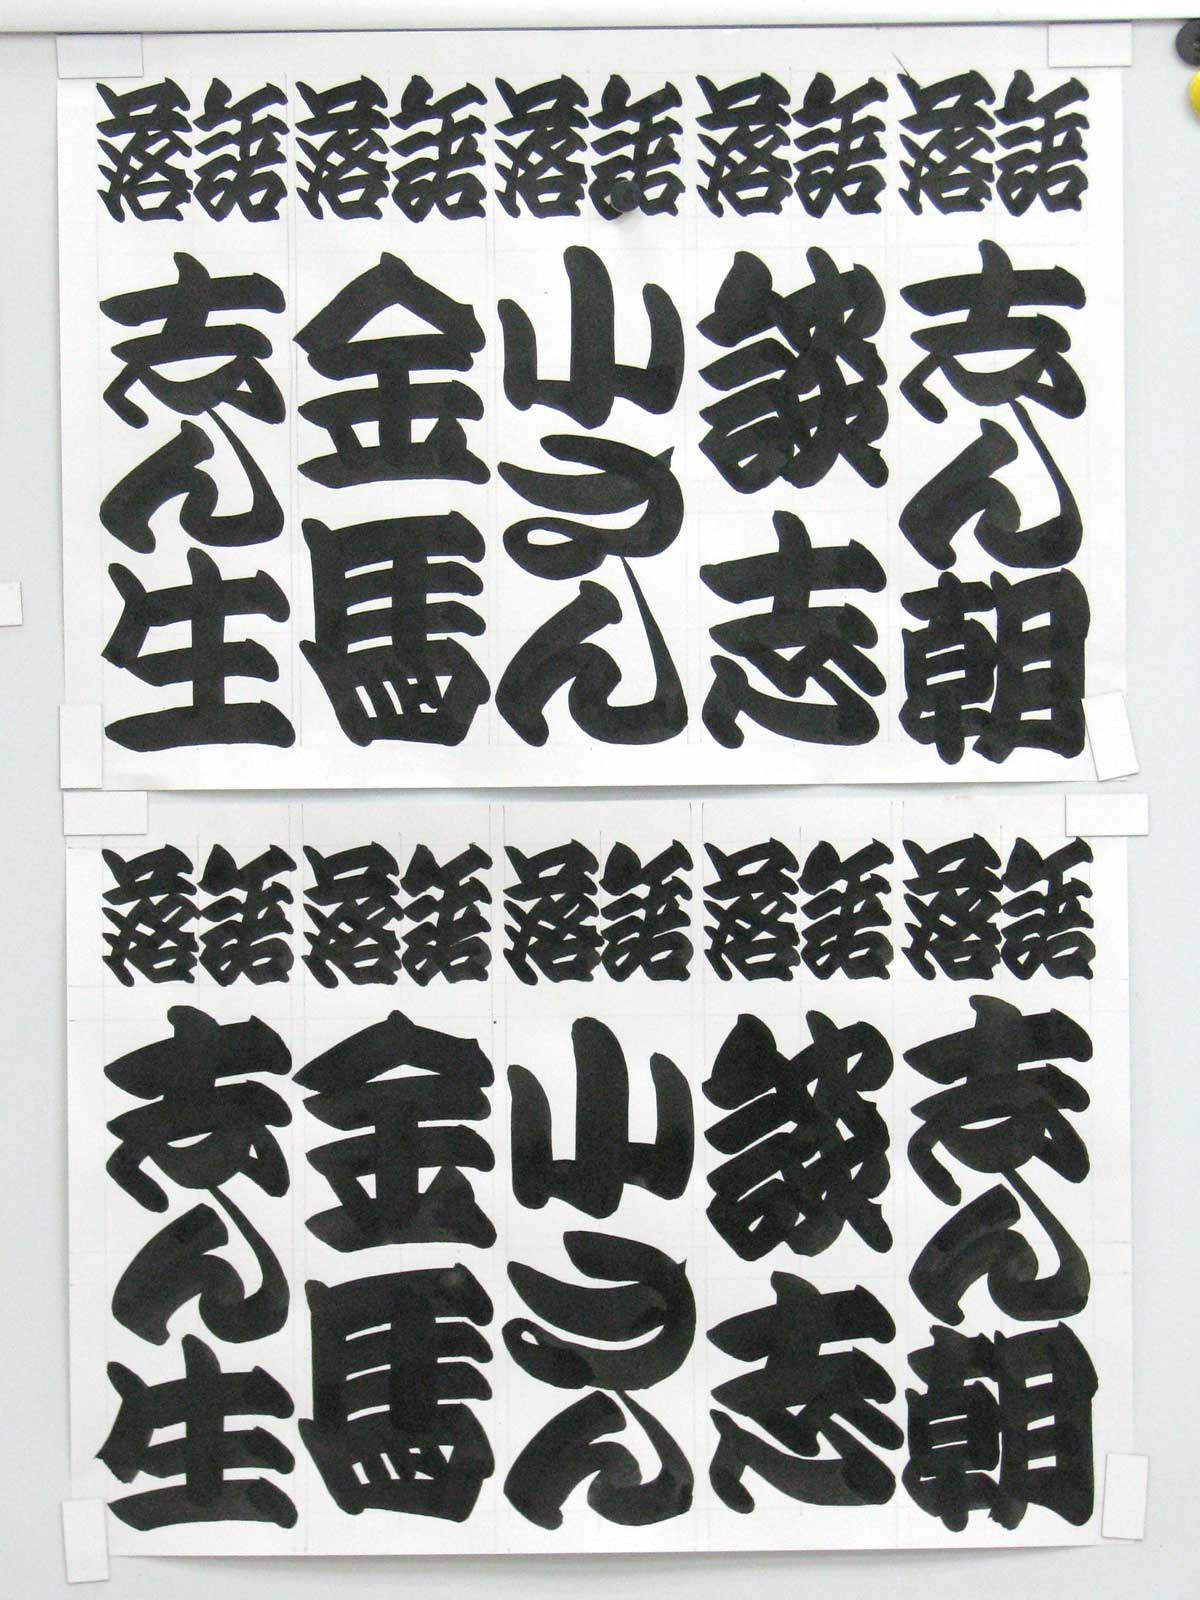 落語
志ん朝
落語
談志
落語
小さん
落語
金馬
落語
志ん生
落語
志ん朝
落語
談志
落語
小さん
落語
金馬
落語
志ん生